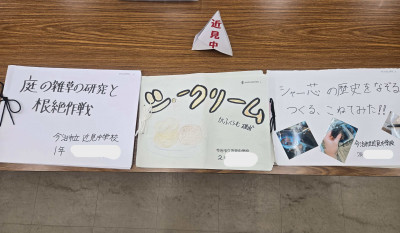 近見中
庭の雑草の研究と
根絶作戦
今治市立近見中学校
1年
シュークリーム
シャー芯の歴史をなぞる
つくる、こねてみた!!
今治市立近見中学校